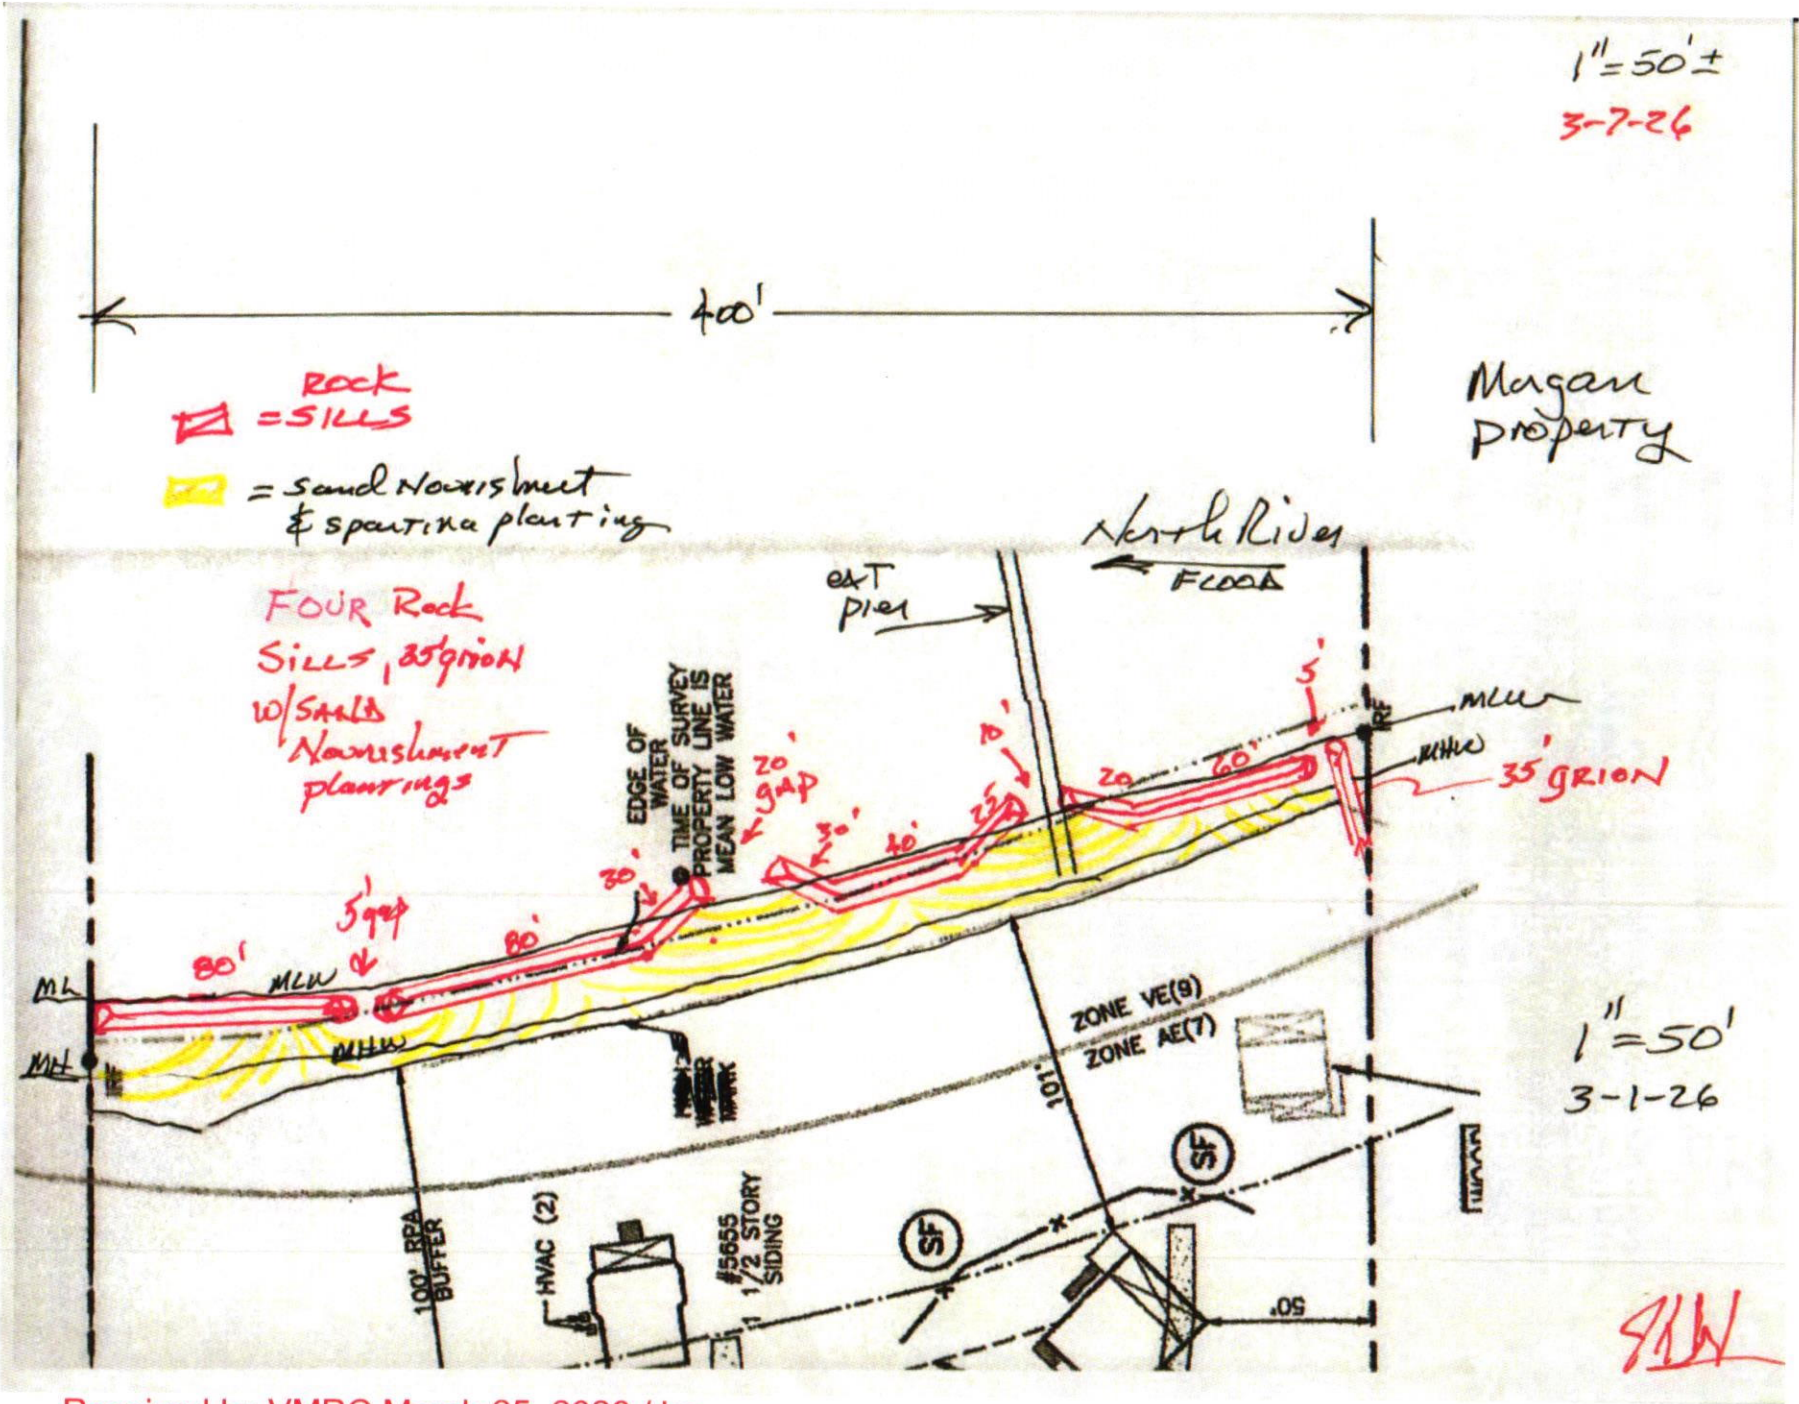 1"=50'±
3-7-26
400'
ROCK
=SILLS
= Sand Nourishment
& spartina planting
Morgan
Property
North River
FLOOD
ext
pier
FOUR Rock
SILLS, 35' GRION
w/ SAND
Nourishment
plantings
EDGE OF
WATER
TIME OF SURVEY
PROPERTY LINE IS
MEAN LOW WATER
20'
gap
30'
40'
25'
20
60'
5'
IRF
MLW
MHW
35' GRION
30'
5' gap
80'
80'
MLW
ML
MH
MHW
IRF
ZONE VE(9)
ZONE AE(7)
101'
1"=50'
3-1-26
SF
SF
100' RPA
BUFFER
HVAC (2)
#5655
1 1/2 STORY
SIDING
50'